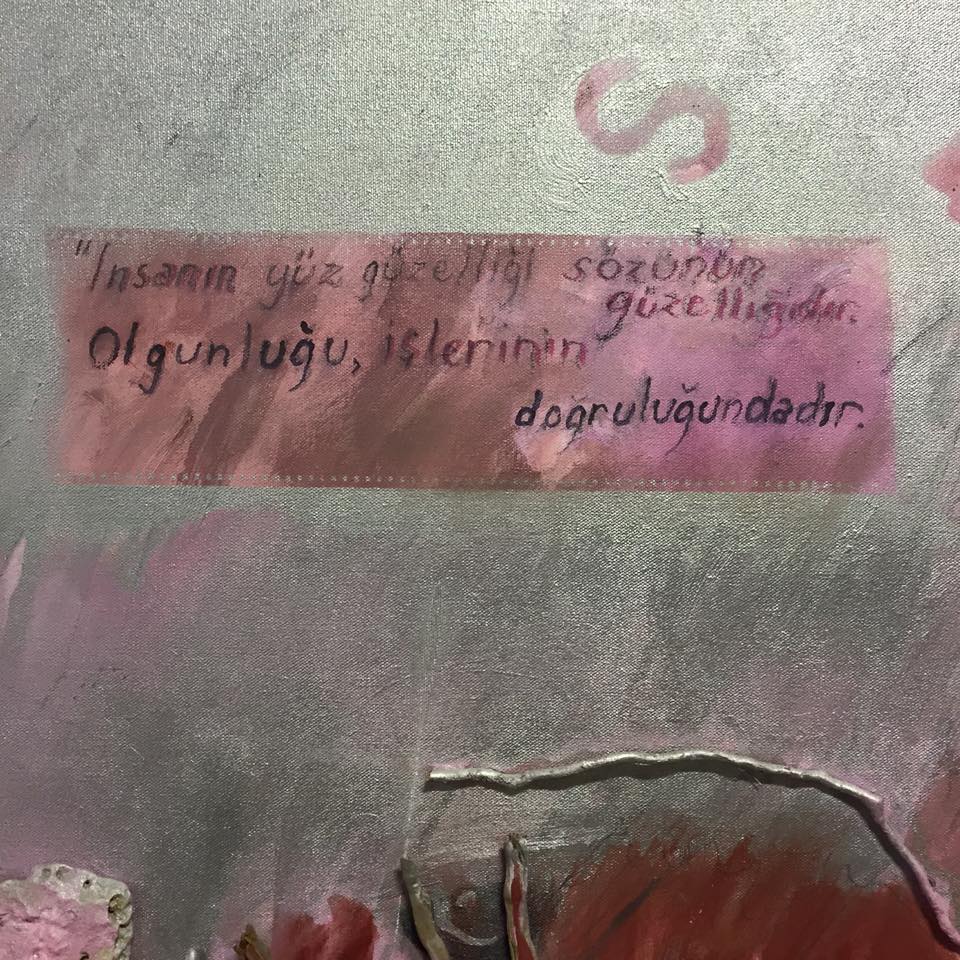 S
"İnsanın yüz güzelliği sözünün
güzelliğidir.
Olgunluğu, işlerinin
doğruluğundadır.